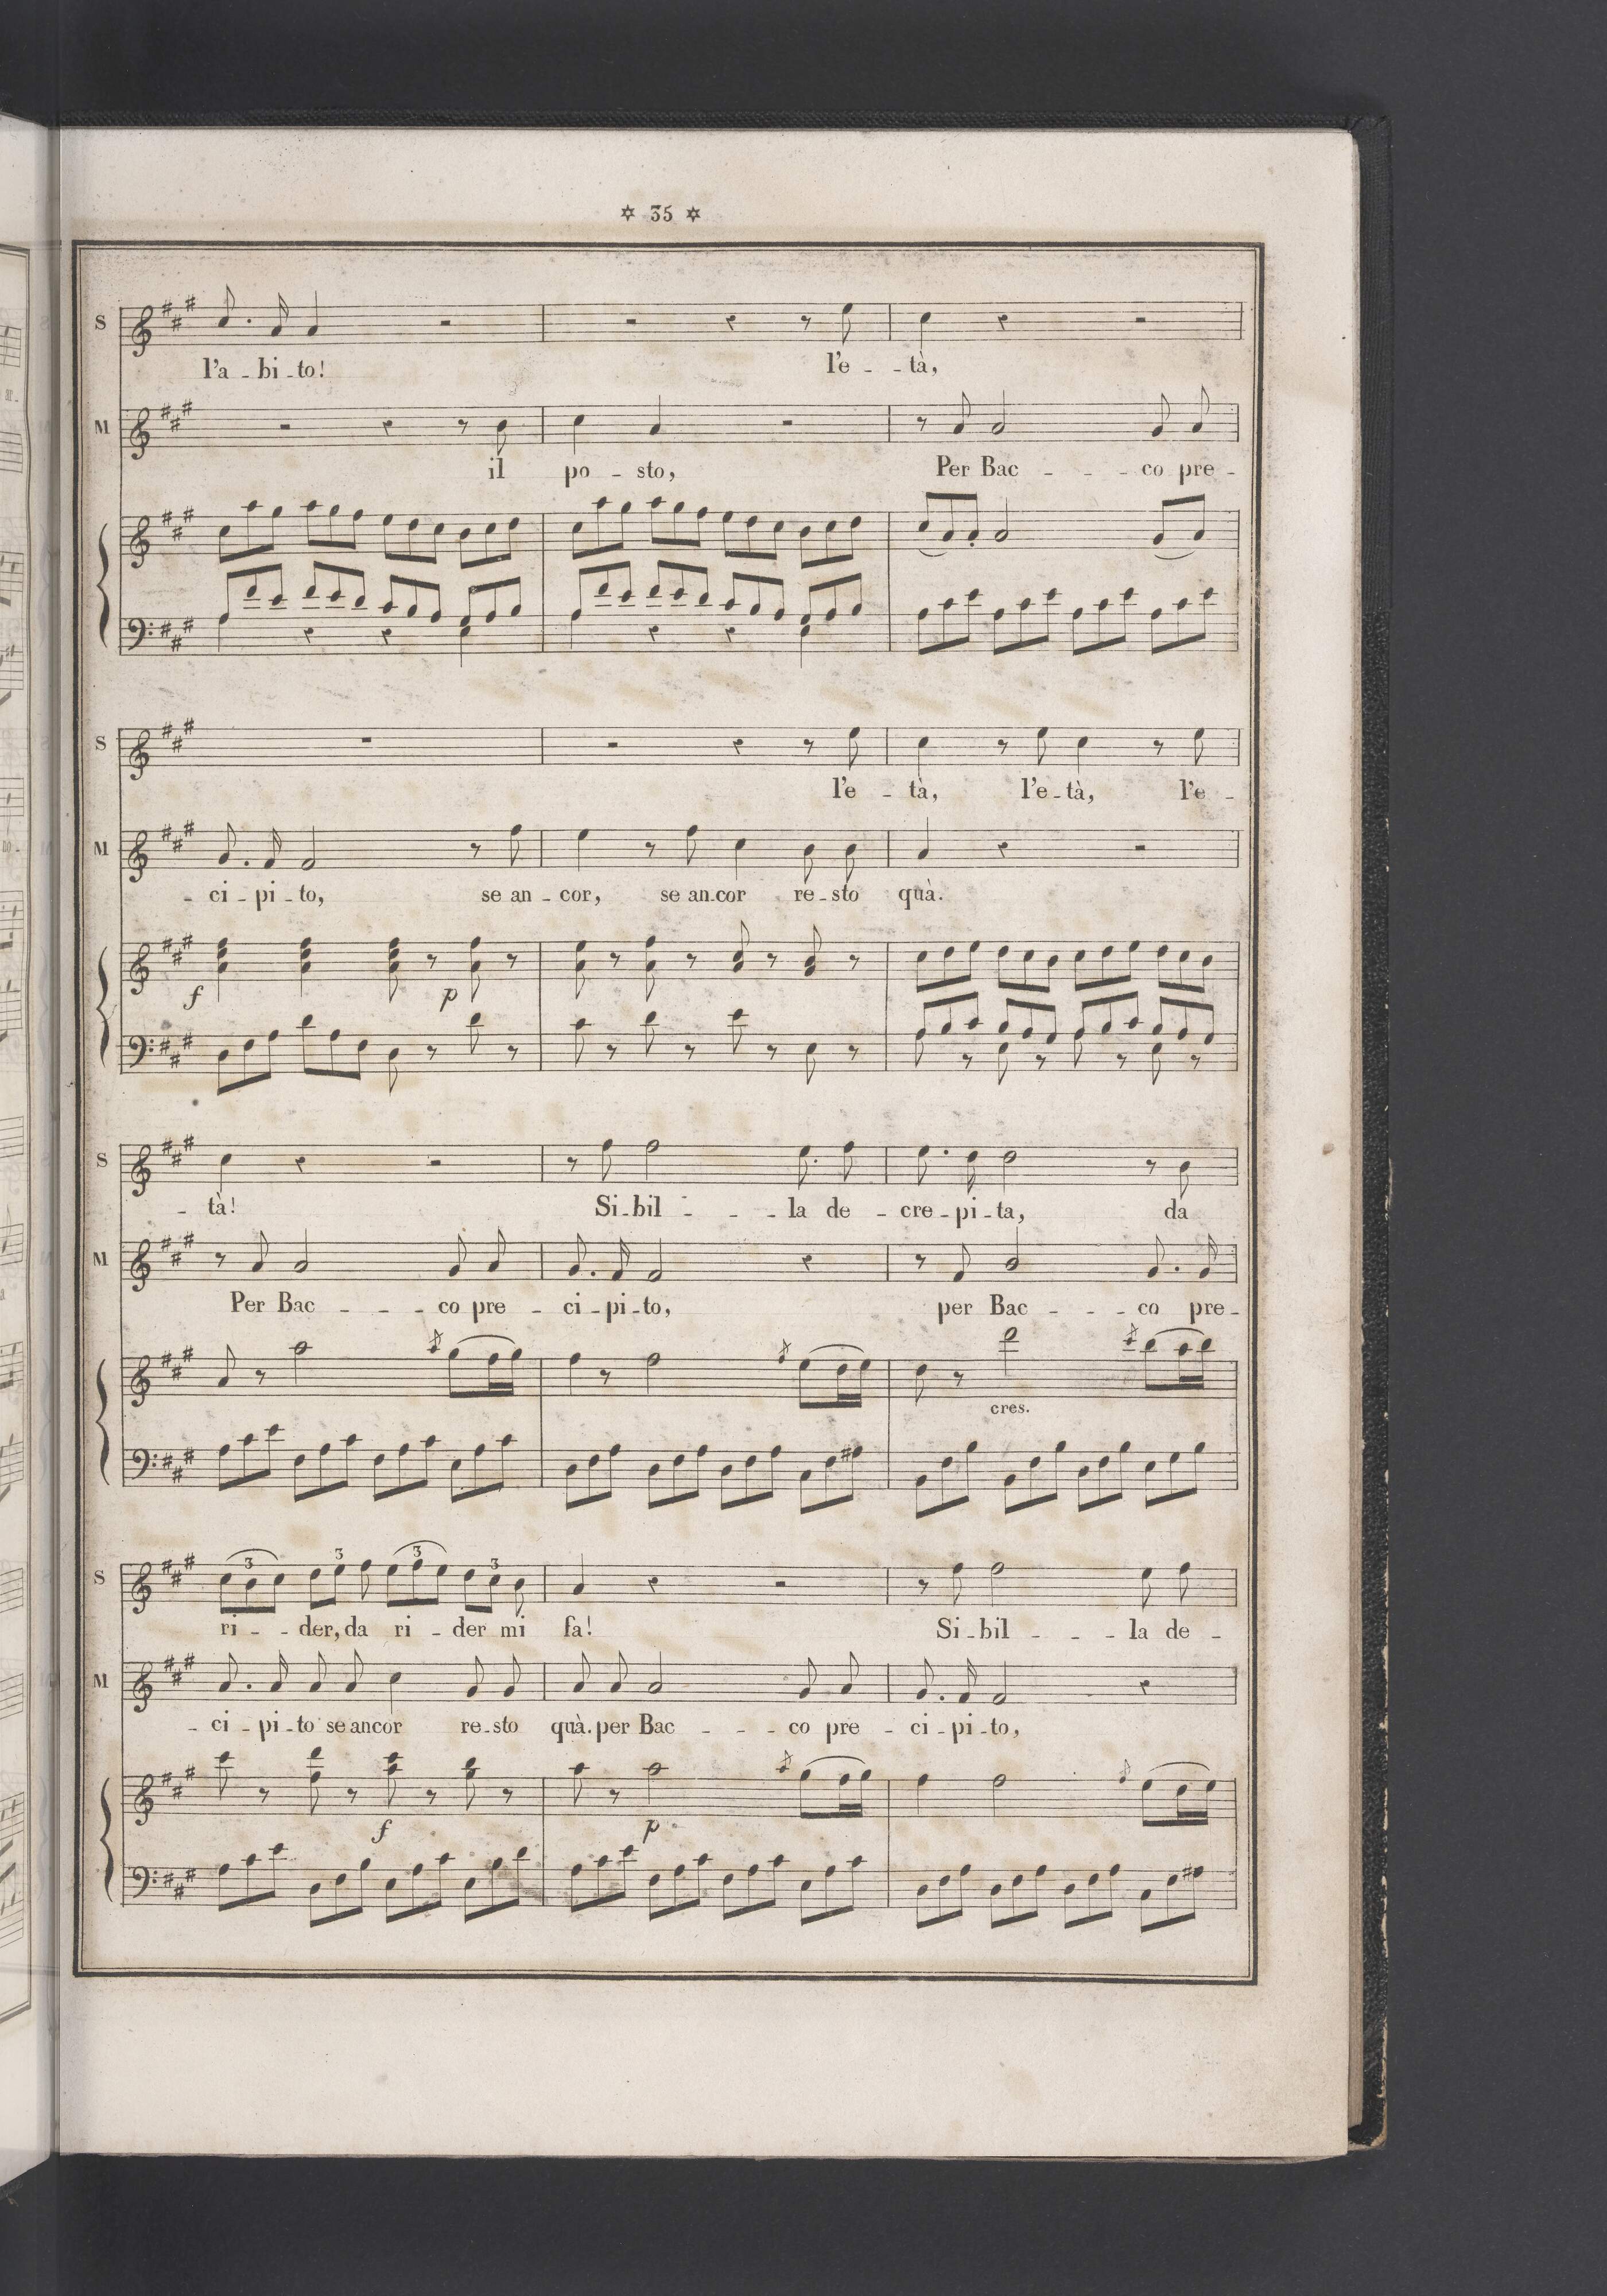 ✡ 35 ✡
S
l'a - bi - to! l'e - - tà,
M
il po - sto, Per Bac - - - co pre -
f p
S
l'e - tà, l'e - tà, l'e -
M
- ci - pi - to, se an - cor, se an - cor re - sto quà.
S
- tà! Si - bil - - - la de - cre - pi - ta, da
M
Per Bac - - - co pre - ci - pi - to, per Bac - - - co pre -
cres.
S
3 3 3 3
ri - - der, da ri - der mi fa! Si - bil - - - la de -
M
- ci - pi - to se ancor re - sto quà. per Bac - - - co pre - ci - pi - to,
f p